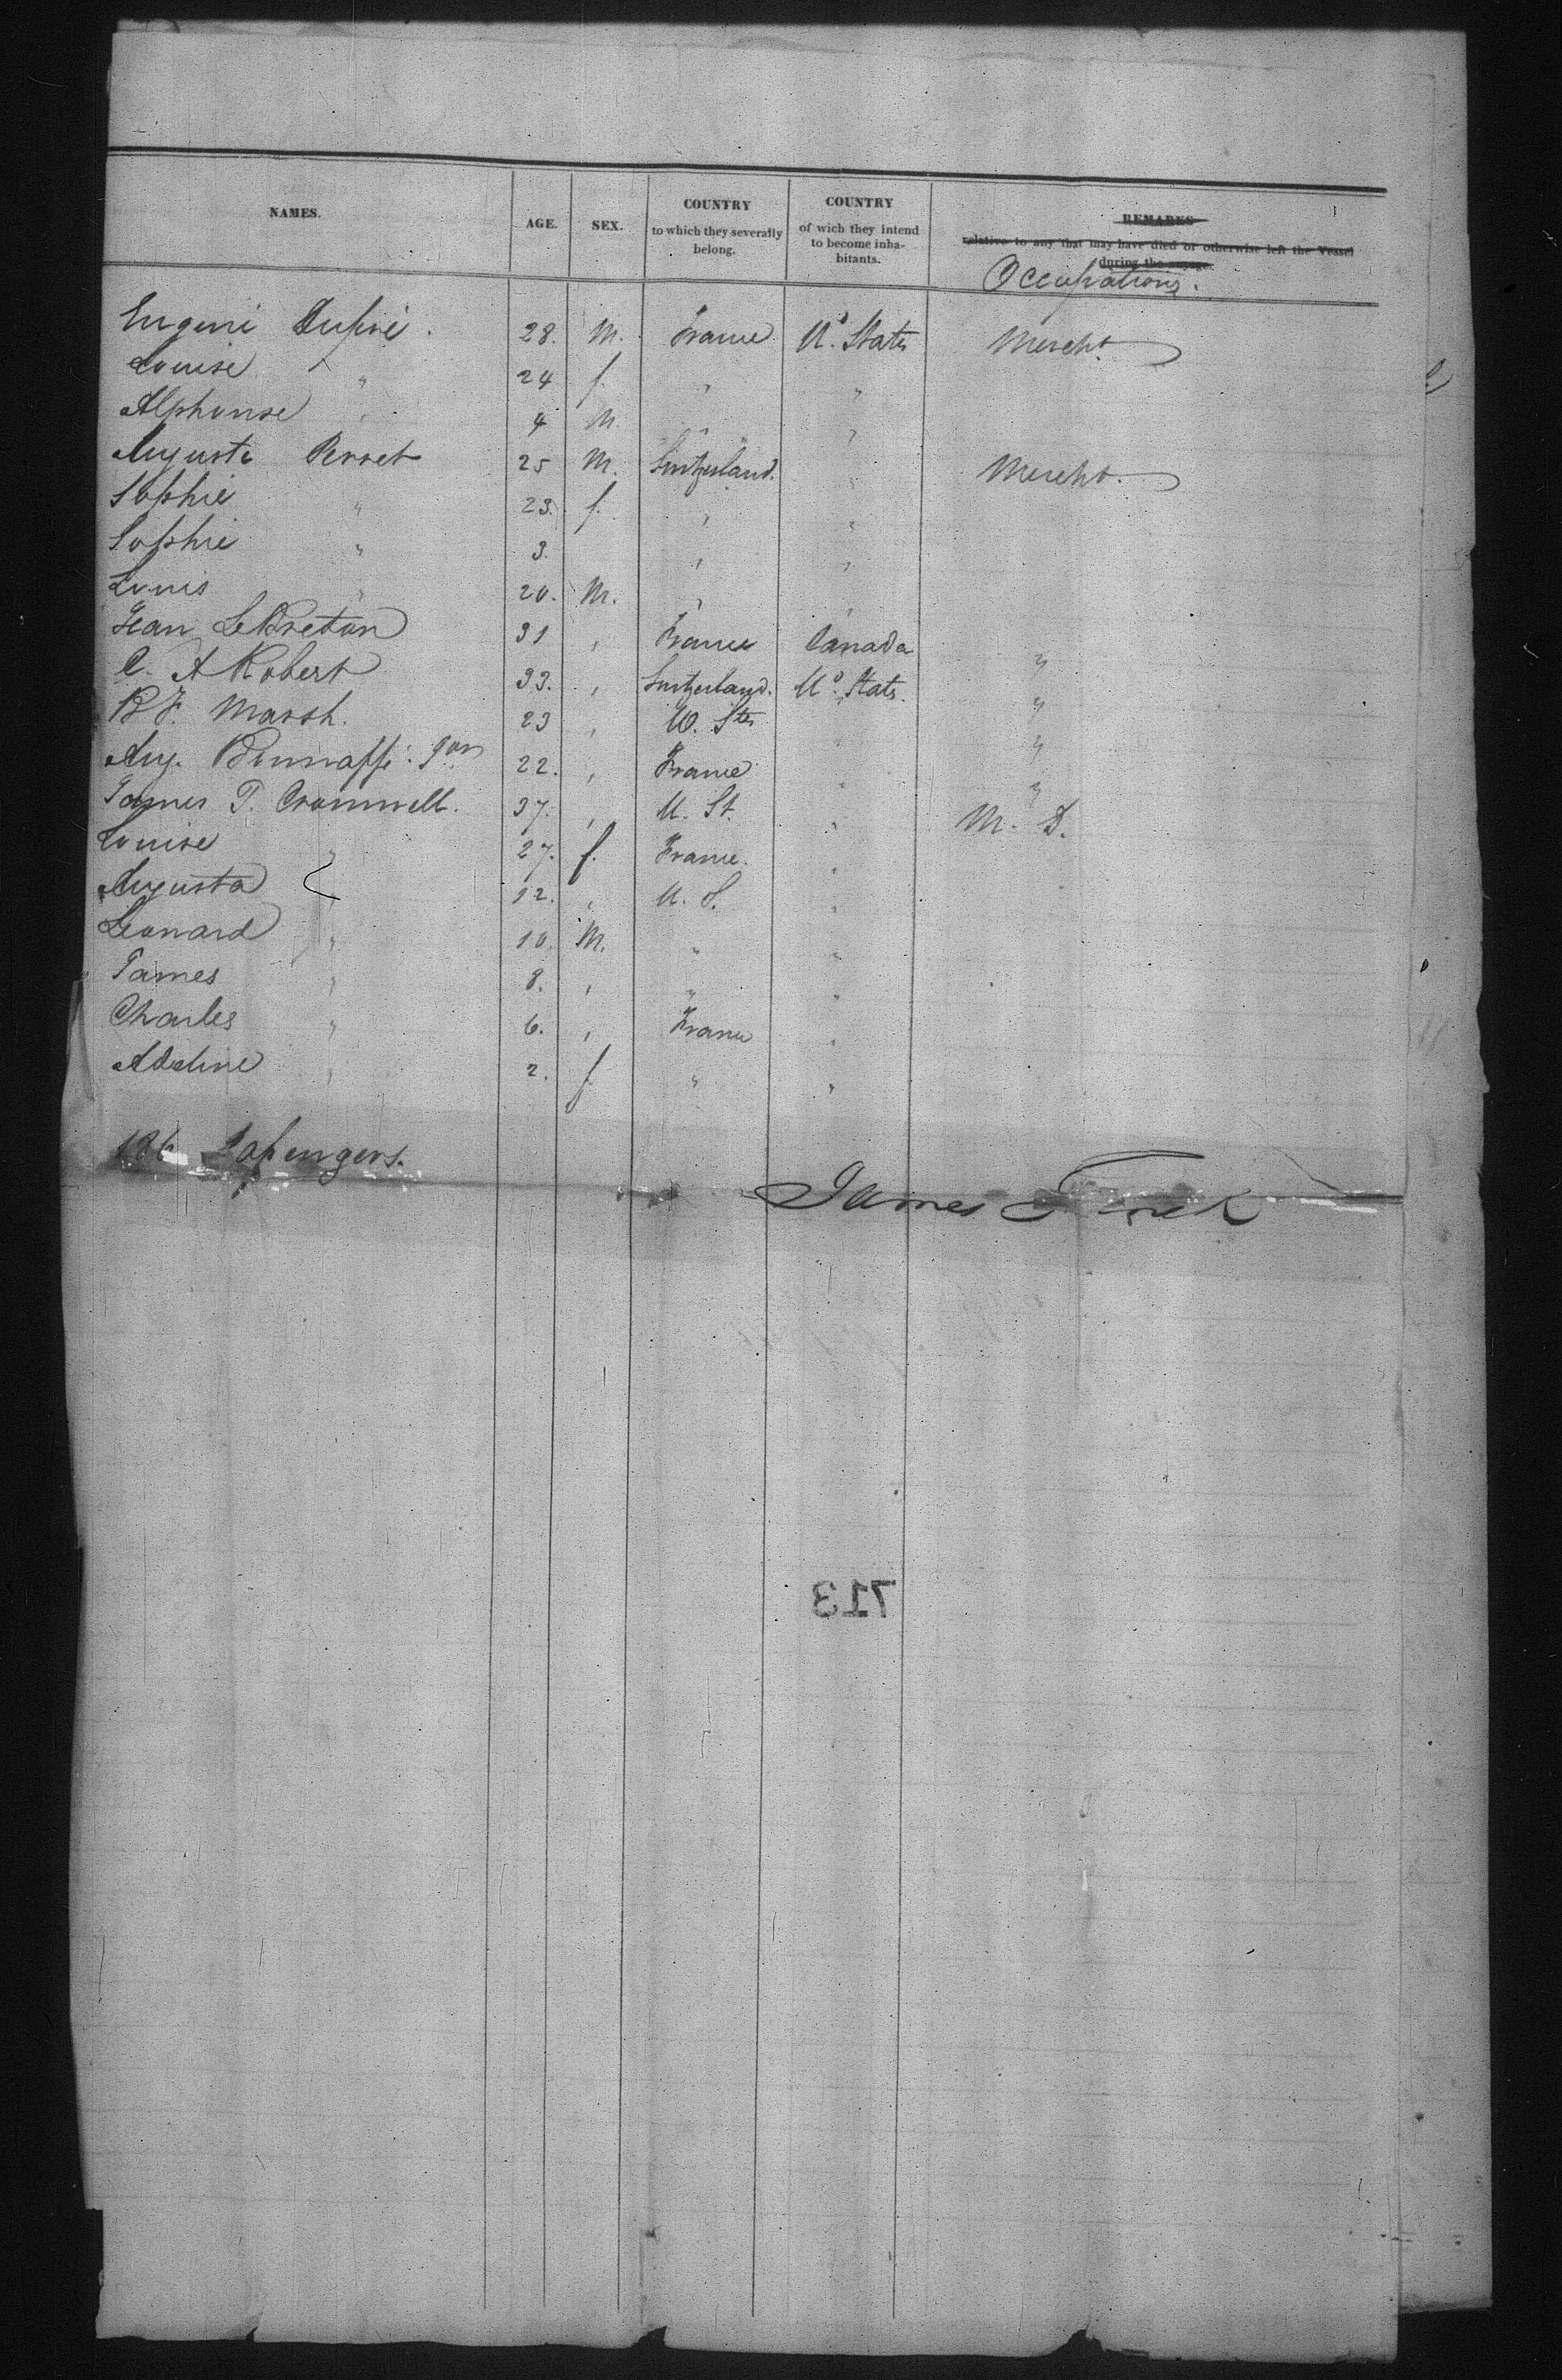 NAMES. AGE. SEX. COUNTRY to which they severally belong. COUNTRY of wich they intend to become inhabitants. REMARKS relative to any that may have died or otherwise left the Vessel during the voyage.
Occupations.
Eugene Dupré. 28. M. France Ud. States Mercht.
Louise " 24 f. " "
Alphonse " 4 M " "
Auguste Perret 25 M. Switzerland. " Mercht.
Sophie " 23. f. " "
Sophie " 3. " "
Louis " 20. M. " "
Jean LeBreton 31 " France Canada "
C. A Robert 33. " Switzerland. Ud. States. "
B F. Marsh. 23 " U. Sts " "
Aug. 22. " France " "
James T. Cromwell. 37. " U. St. " M. D.
Louise " 27. f. France. "
Augusta " 12. " U. S. "
Leonard " 10. M. " "
James " 8. " " "
Charles " 6. " France "
Adeline " 2. f " "
186 Passengers.
James Funck
713